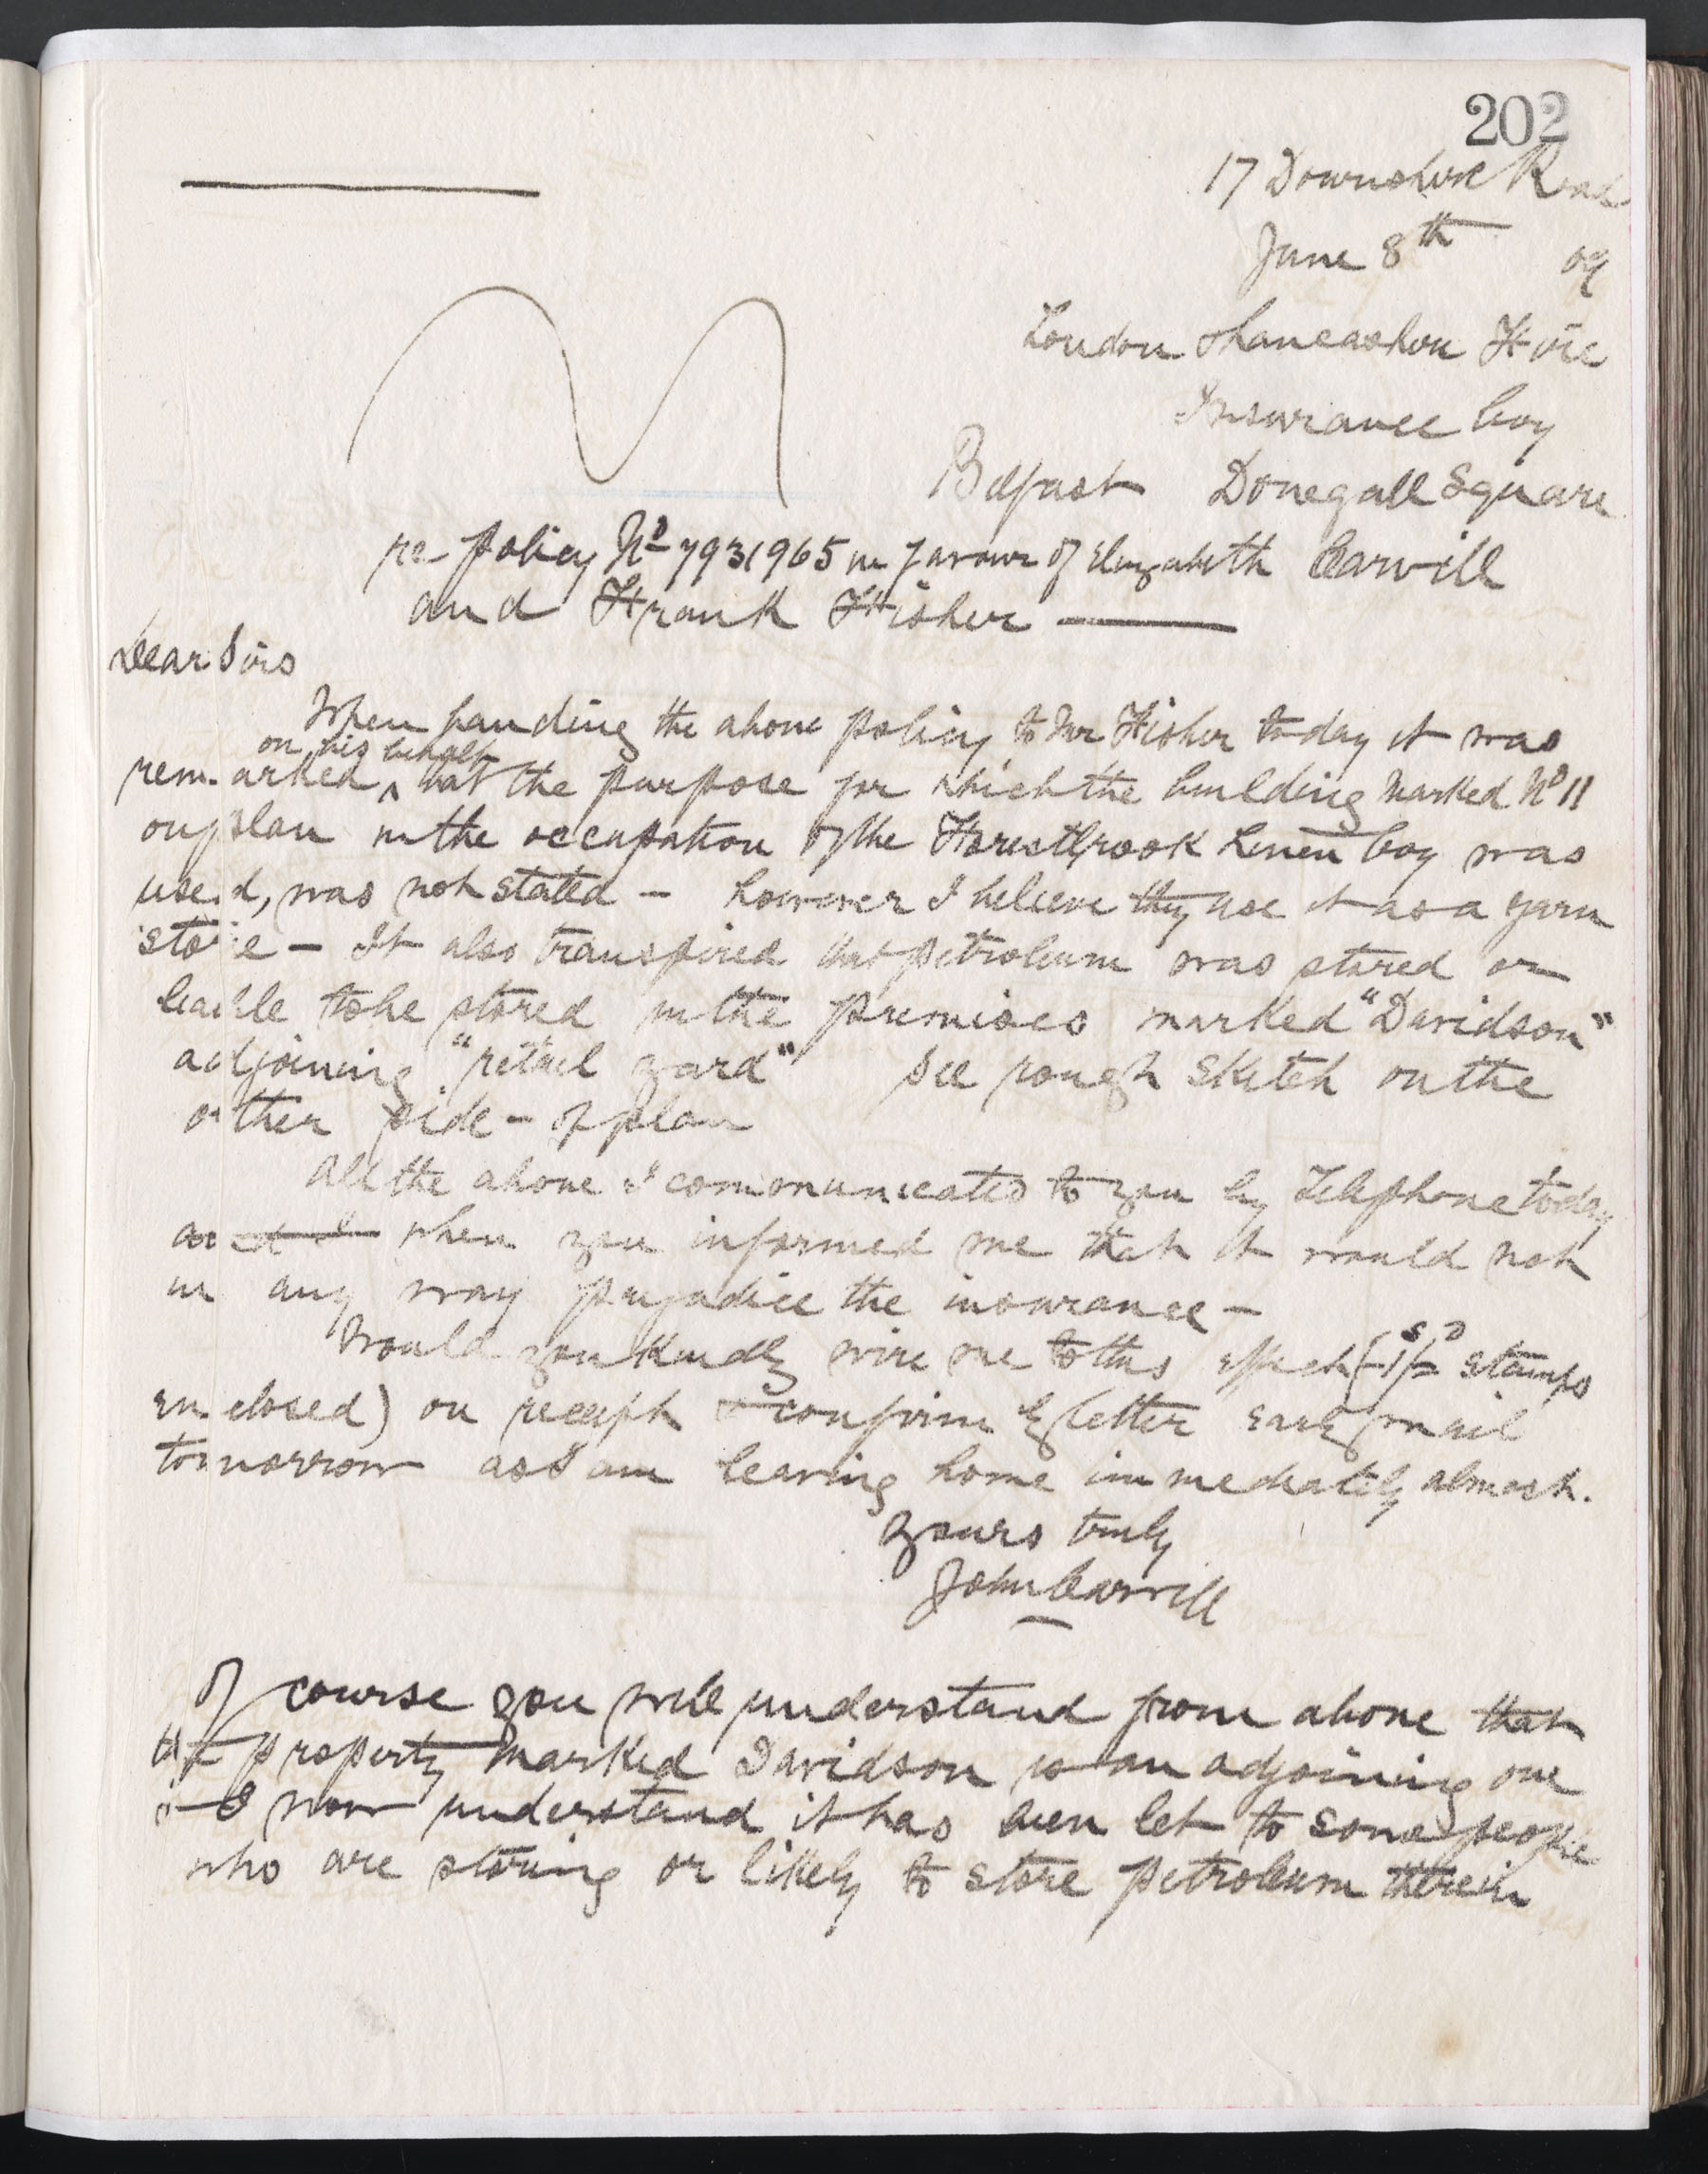 202
17 Downshire Road
June 8th 09
London & Lancashire Fire
Insurance Coy
Belfast Donegall Square
re policy No 7931965 in favour of Elizabeth Carvill
and Frank Fisher
Dear Sirs
When handing the above policy to Mr Fisher today it was
on his behalf
remarked ^ that the purpose for which the building marked No 11
on plan in the occupation of the Forestbrook Linen Coy was
used, was not stated - however I believe they use it as a yarn
store - It also transpired that petroleum was stored or
leable to be stored in the premises marked "Davidson"
adjoining "retail yard" See rough sketch on the
other side - of plan
All the above I communicated to you by Telephone today
when you informed me that it would not
in any way prejudice the insurance -
Would you kindly wire me to this effect (1s/- stamps
enclosed) on receipt & confirm by letter early mail
tomorrow as I am leaving home immediately almost.
Yours truly
John Carvill
Of course you will understand from above that
the property marked Davidson is an adjoining one
& I now understand it has been let to some people
who are storing or likely to store petroleum therein